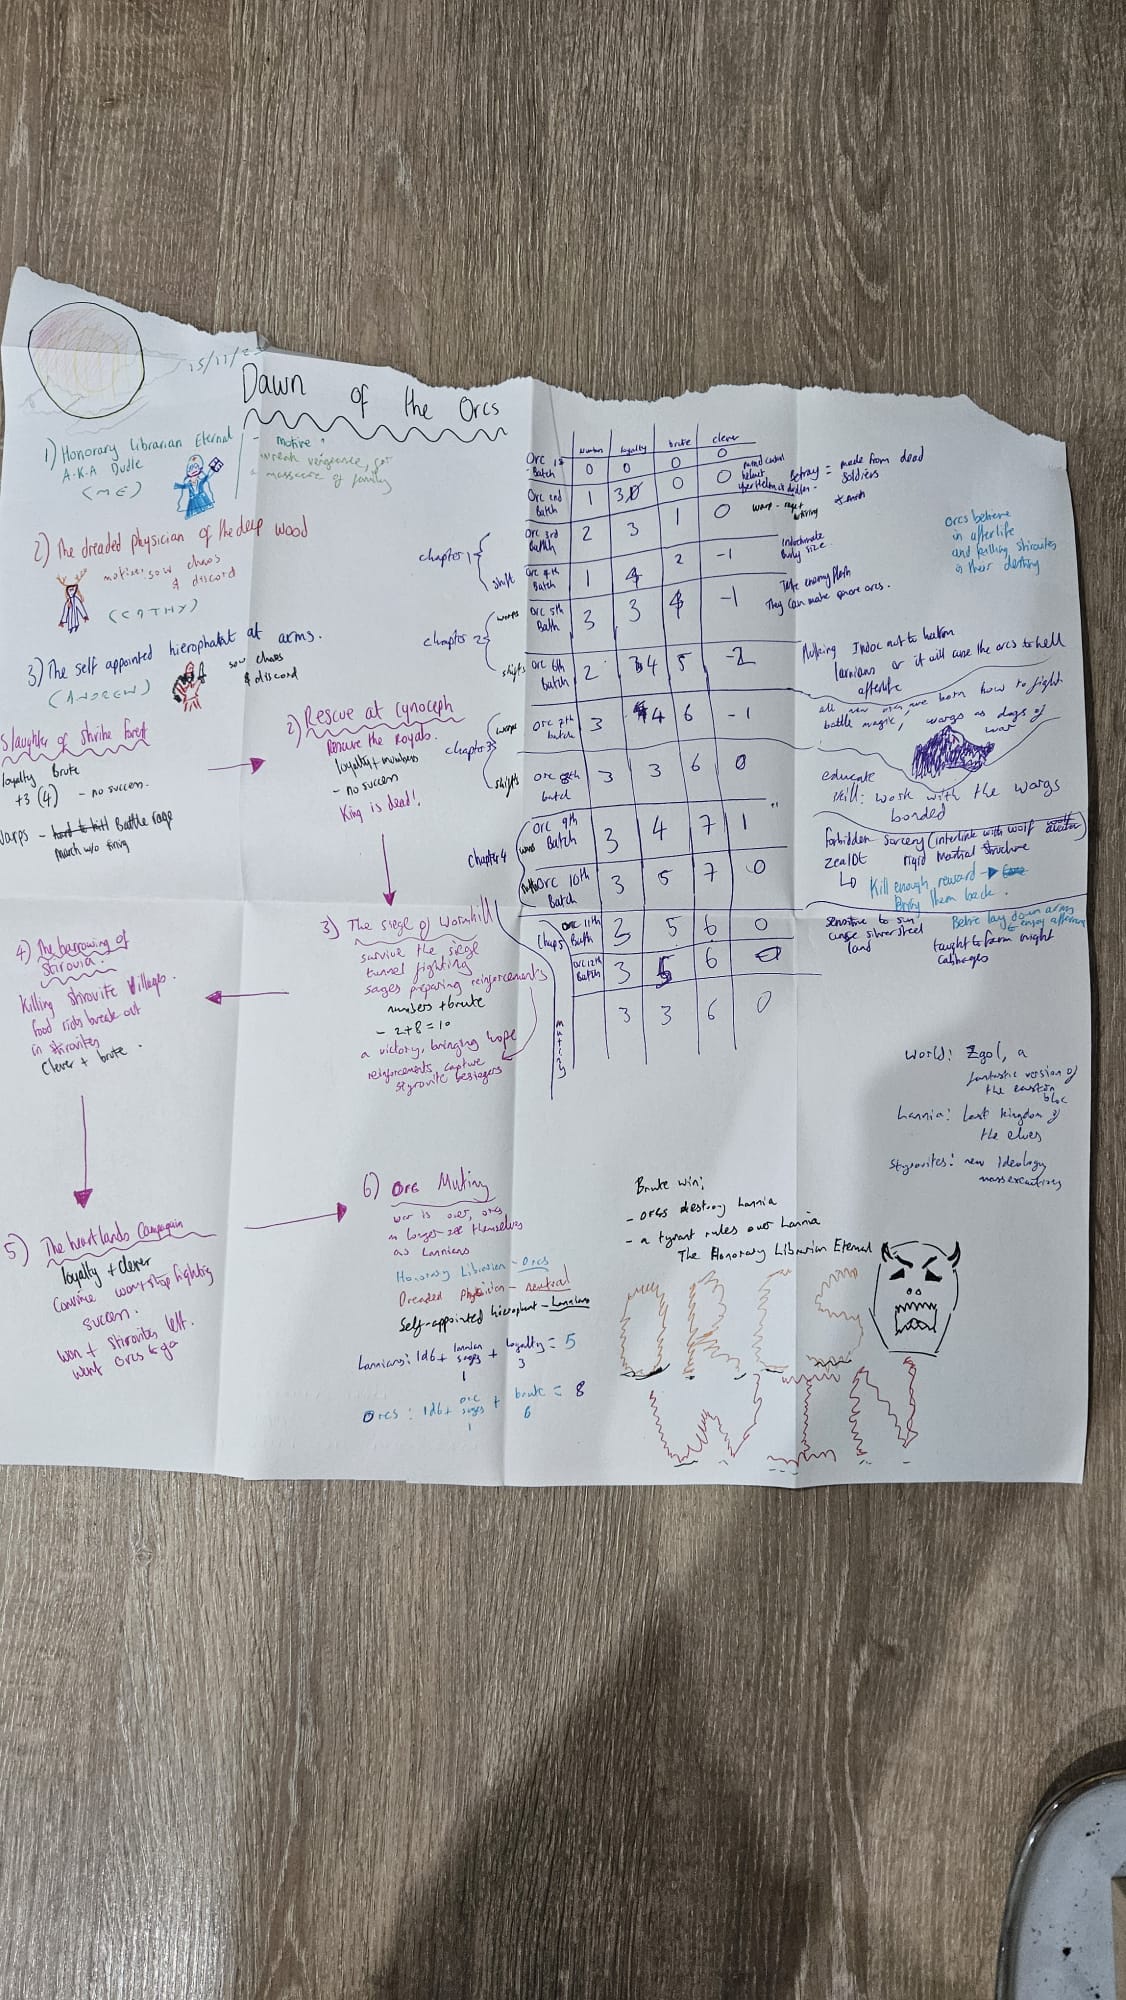 15/11/2
Dawn of the Orcs
1) Honorary Librarian Eternal
A.K.A Dudle
(ME)
- motive:
wreak vengeance for
massacre of family
2) The dreaded physician of the deep wood
motive: sow chaos
& discord
(CATHY)
3) The self appointed hierophant at arms.
(ANDREW)
sow chaos
& discord
Slaughter of Stribe forest
loyalty Brute
+3 (4) - no success.
Warps - hard to kill Battle rage
march w/o tiring
2) Rescue at Cynoceph
Rescue the Royals.
loyalty + numbers
- no success
King is dead!
3) The siege of Wormhill
survive the siege
tunnel fighting
sages preparing reinforcements
numbers + brute
- 2+8=10
a victory, bringing hope
reinforcements capture
styrovite besiegers
4) The harrowing of
Stirovia.
Killing stirovite villages.
food riots break out
in stirovites
Clever + brute.
5) The heartlands Campaign
loyalty + clever
Convince won't stop fighting
success.
won + Stirovites left.
went orcs to go
6) Orc Mutiny
war is over, orcs
no longer see themselves
as Lannians
Honorary Librarian - orcs
Dreaded Physician - neutral
Self-appointed hierophant - Lannians
Lannians: 1d6 + lannian sages + loyalty = 5
1 3
Orcs: 1d6 + orc sages + brute = 8
1 6
number loyalty brute clever
Orc 1st Batch 0 0 0 0
Orc 2nd Batch 1 3 0 0
Orc 3rd Batch 2 3 1 0
Orc 4th Batch 1 4 2 -1
Orc 5th Bath 3 3 4 -1
Orc 6th Batch 2 4 5 -2
Orc 7th batch 3 4 6 -1
Orc 8th batch 3 3 6 0
Orc 9th Batch 3 4 7 1
Orc 10th Batch 3 5 7 0
Orc 11th Bath 3 5 6 0
Orc 12th Batch 3 5 6 0
3 3 6 0
chapter 1
shift
chapter 2
warps
shifts
chapter 3
warps
shifts
chapter 4
warps
Chap 5
mutiny
mind control
helmet
Betray = made from dead
soldiers
warp - rage +
Indoctrinate
Body size
Take enemy flesh
They can make more orcs.
orcs believe
in afterlife
and killing stirovites
is their destiny
Indoc not to harm
larnians or it will cause the orcs to hell
afterlife
all new orcs are born how to fight
battle magic, wargs as dogs of
war
educate
skill: work with the wargs
bonded
forbidden sorcery (interlink with wolf
zealot rigid Martial Structure
Kill enough, reward →
Bring them back.
sensitive to sun
curse silver steel
land
Before lay down arms
to enjoy afterlife
taught to farm night
cabbages
World: Zgol, a
fantastic version of
the eastern
bloc
Lannia: last kingdom of
the elves
Styrovites: new ideology
mass executions
Brute win:
- orcs destroy Lannia
- a tyrant rules over Lannia
The Honorary Librarian Eternal
ORCS
WIN